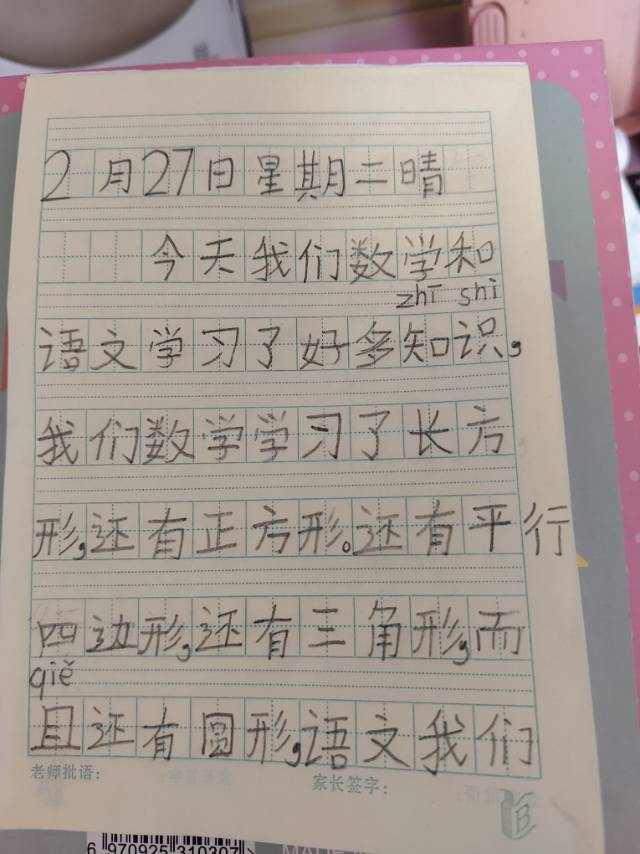 2月27日星期二晴
今天我们数学和
zhī shì
语文学习了好多知识,
我们数学学习了长方
形,还有正方形。还有平行
四边形,还有三角形,而
qiě
且还有圆形,语文我们
老师批语: 家长签字:
6 970925 310307 >